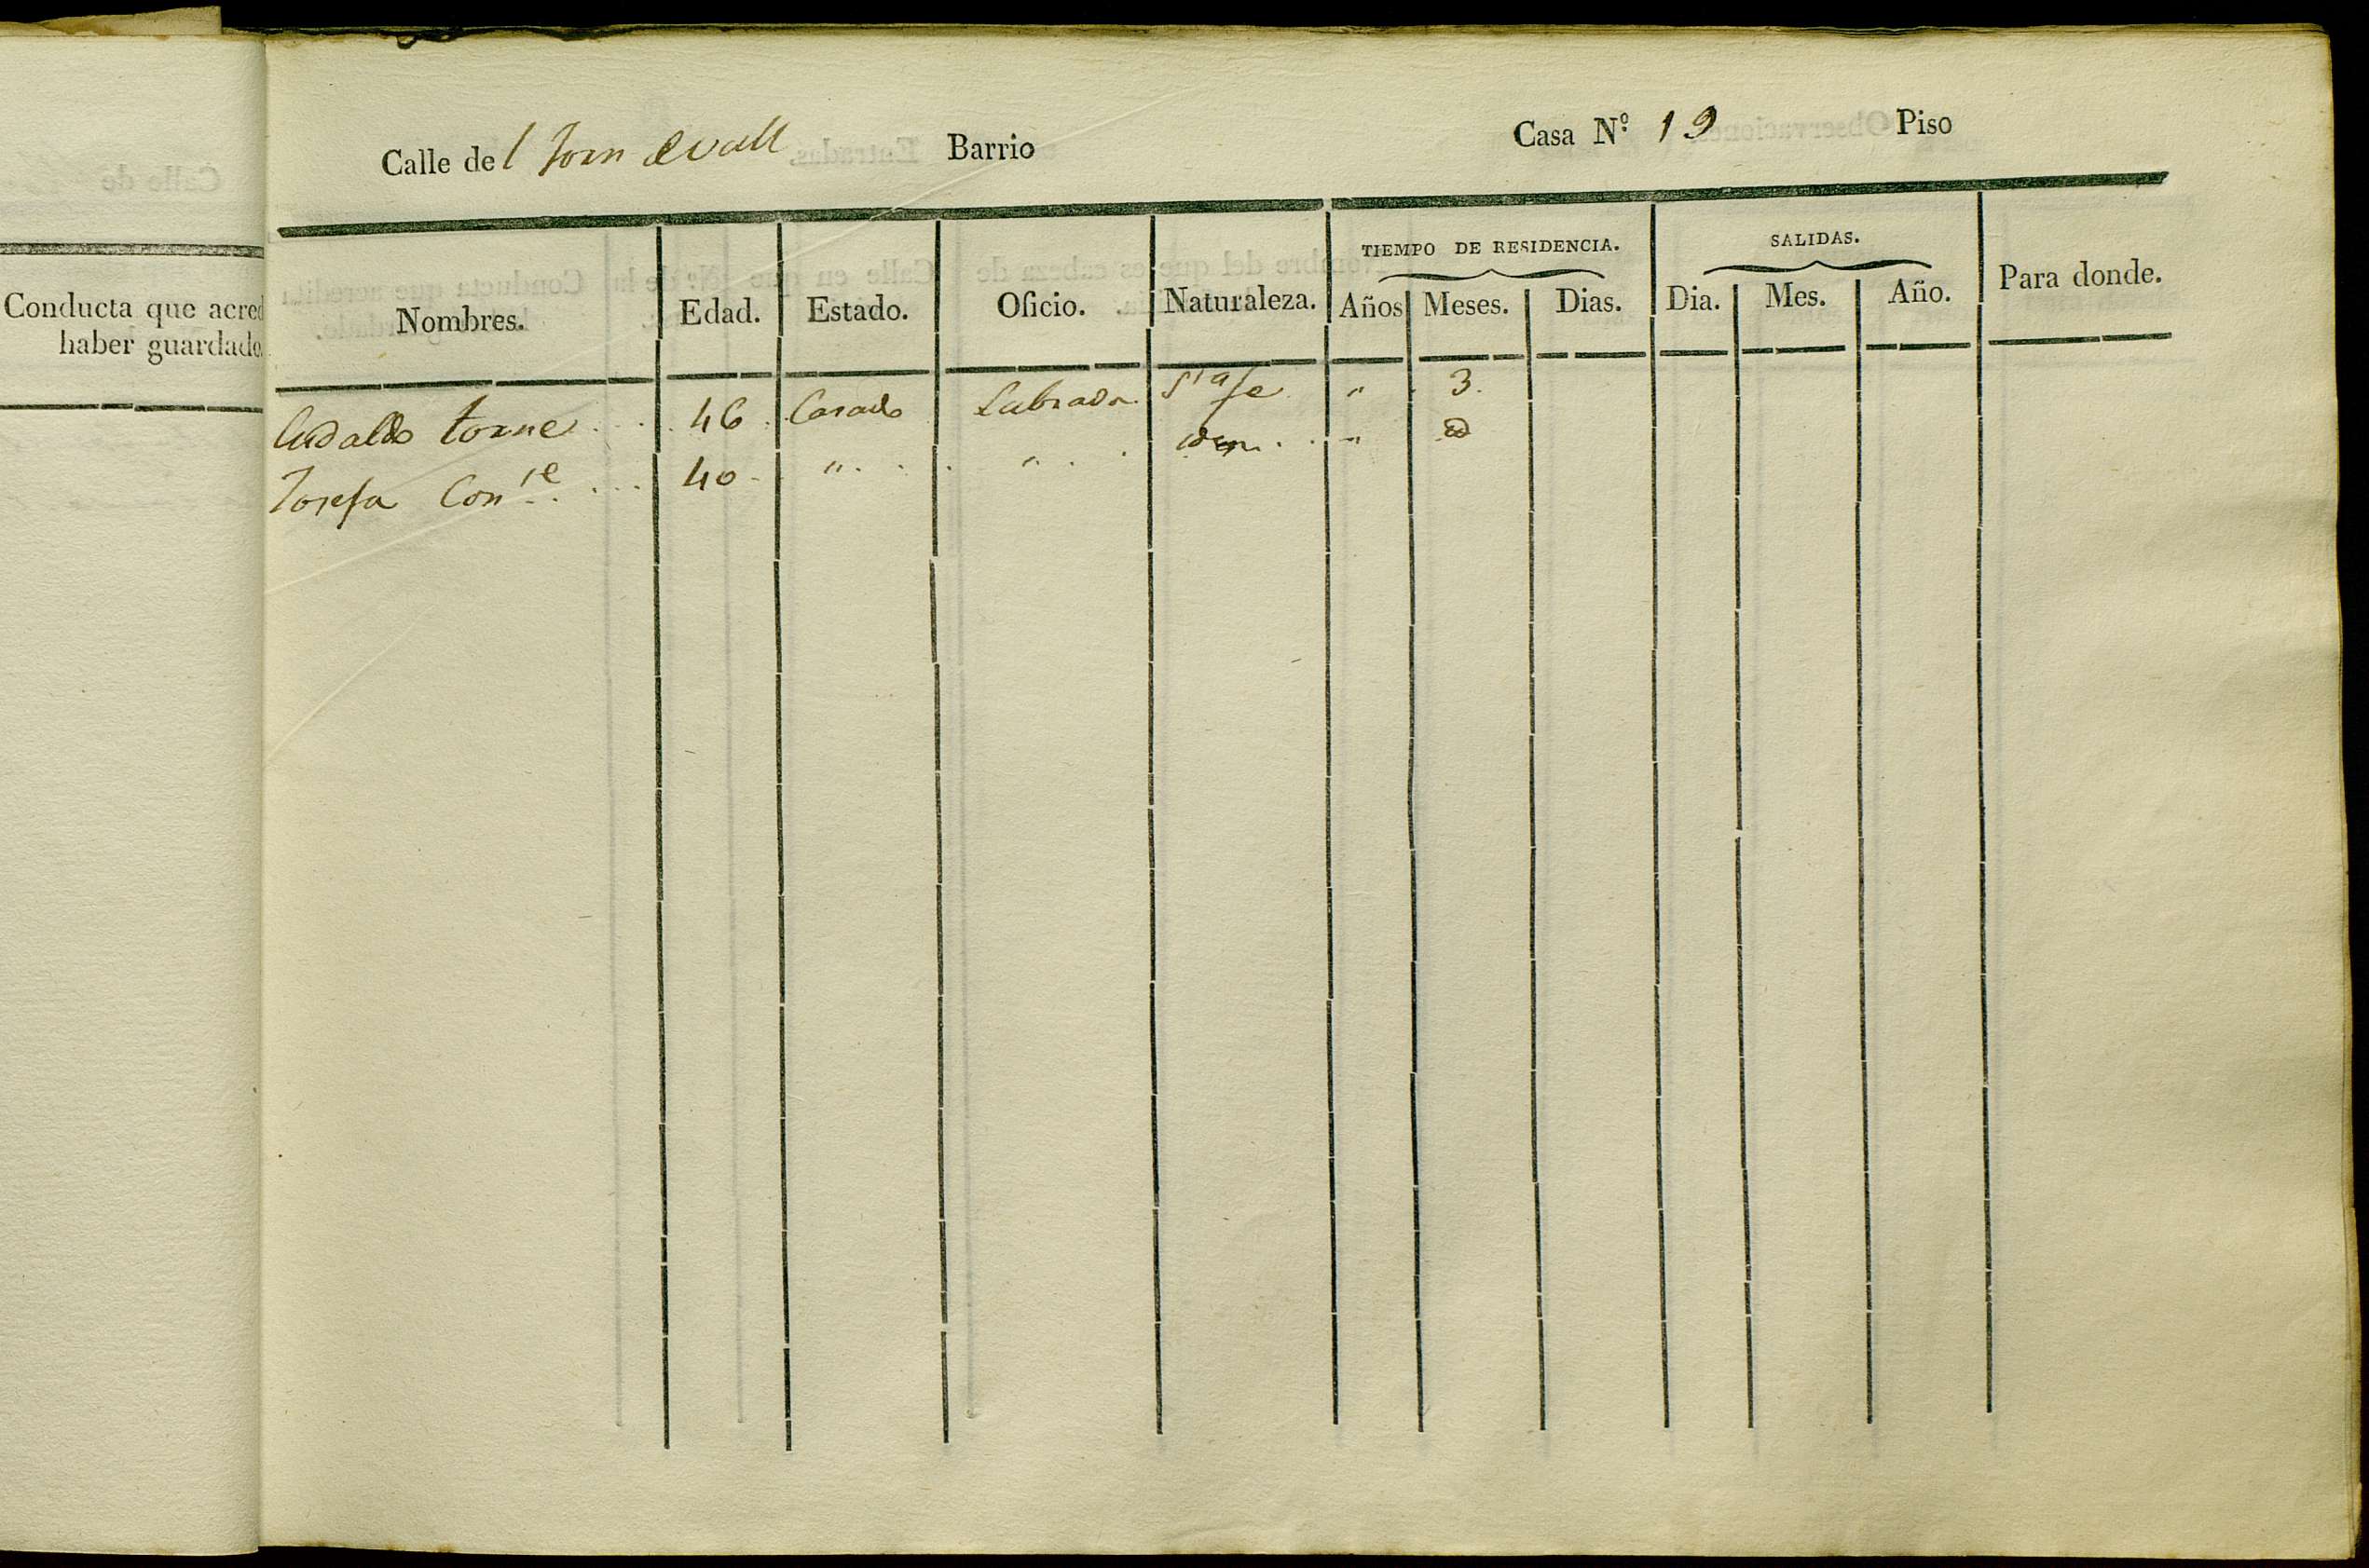 Conducta que acred
haber guardado.
Calle del Torn de vall Barrio Casa N.º 19 Piso
TIEMPO DE RESIDENCIA. SALIDAS.
Nombres. Edad. Estado. Oficio. Naturaleza. Años Meses. Dias. Dia. Mes. Año. Para donde.
Audaldo torne 46 Casado Labrador Sta fe " 3.
Josefa Conte 40 " " idem "